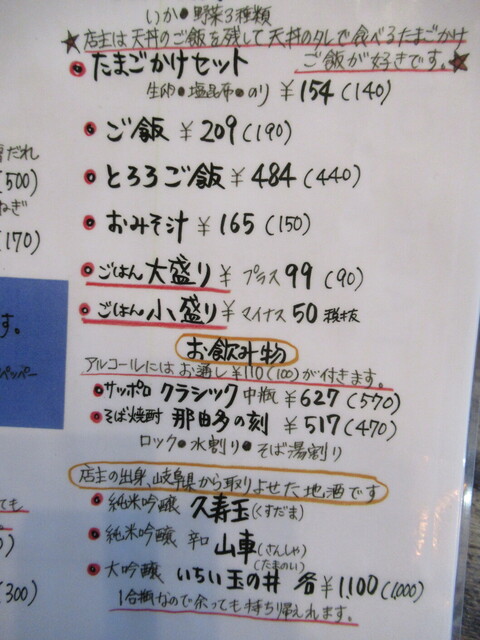 いか●野菜3種類
★店主は天丼のご飯を残して天丼のタレで食べるたまごかけ
ご飯が好きです。★
たまごかけセット
生卵●塩昆布●のり ¥154(140)
ご飯 ¥209(190)
だれ
とろろご飯 ¥484(440)
(500)
ねぎ
おみそ汁 ¥165(150)
(170)
ごはん 大盛り ¥ プラス 99(90)
ごはん 小盛り ¥ マイナス 50 税抜
す。
お飲み物
ペッパー
アルコールにはお通し¥110(100)が付きます。
サッポロ クラシック 中瓶 ¥627(570)
そば焼酎 那由多の刻 ¥517(470)
ロック●水割り●そば湯割り
店主の出身、岐阜県から取りよせた地酒です
ても
純米吟醸 久寿玉(くすだま)
純米吟醸 辛口 山車(さんしゃ)
(たまのい)
大吟醸 いちい玉の井 各¥1,100(1,000)
(300)
1合瓶なので余っても持ち帰えれます。